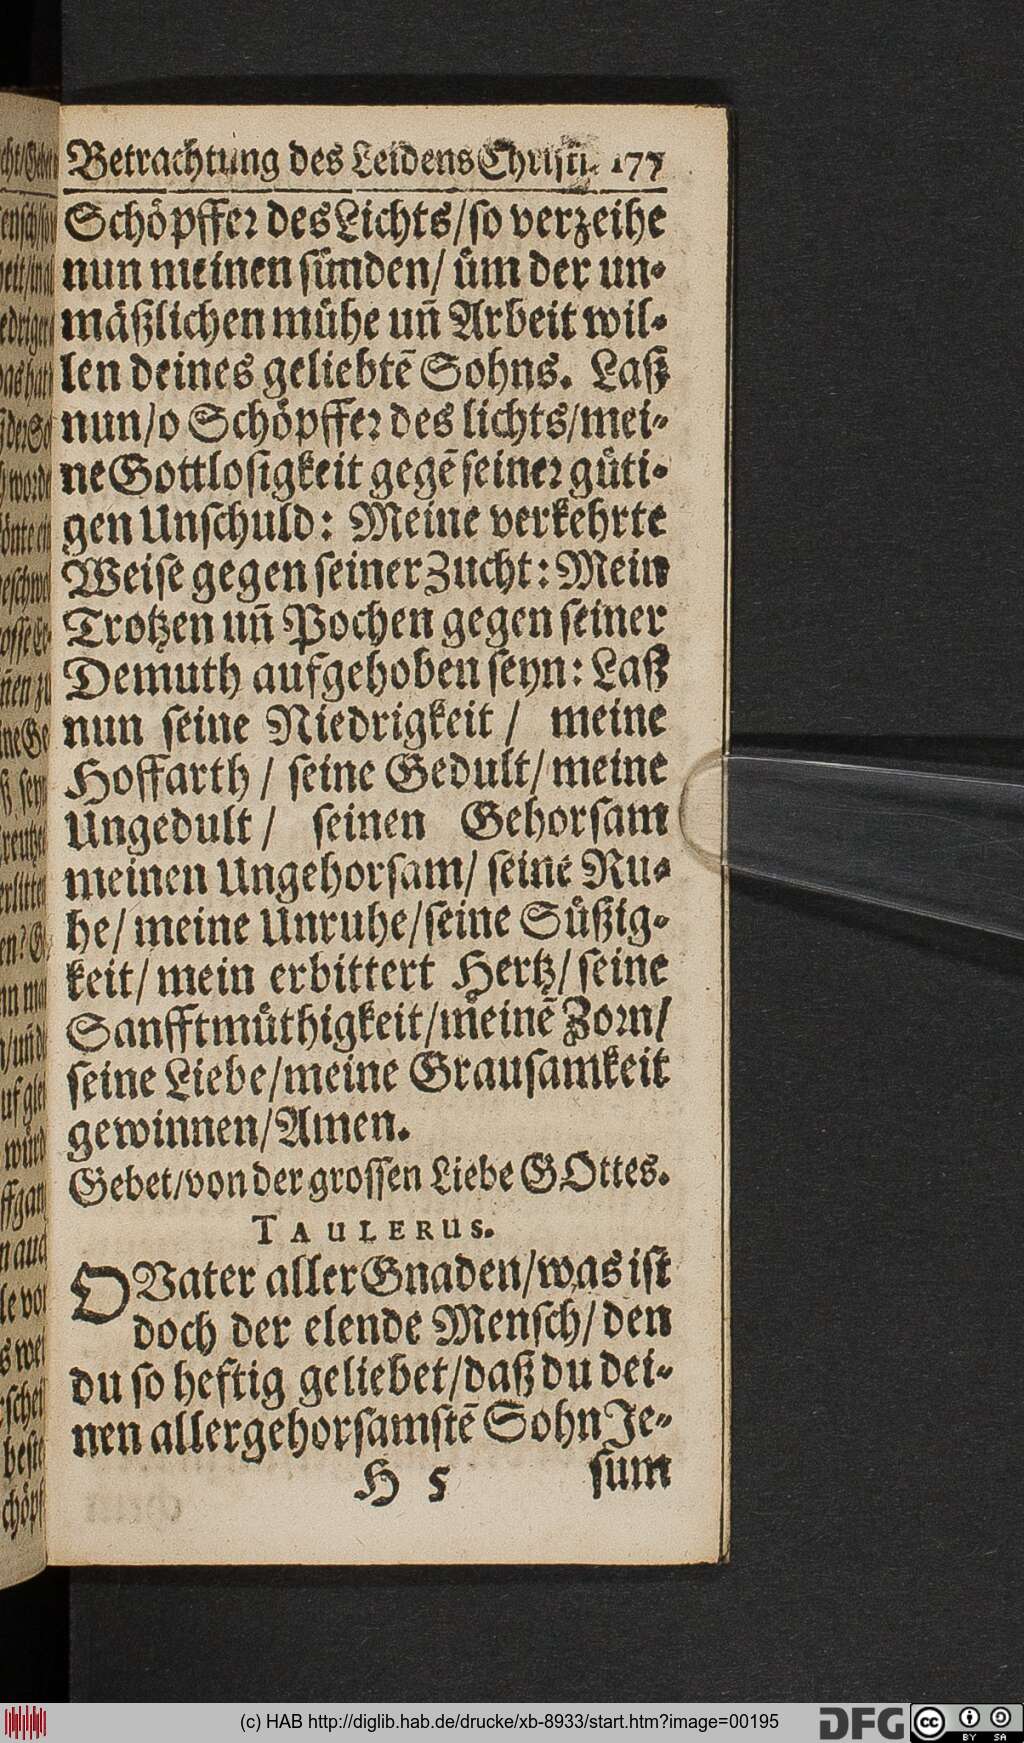 Betrachtung des Leidens Christi. 177
Schöpffer des Lichts/so verzeihe
nun meinen sünden/ üm der un-
mäßlichen mühe uñ Arbeit wil-
len deines geliebtē Sohns. Laß
nun/o Schöpffer des lichts/mei-
ne Gottlosigkeit gegē seiner güti-
gen Unschuld: Meine verkehrte
Weise gegen seiner Zucht: Mein
Trotzen uñ Pochen gegen seiner
Demuth aufgehoben seyn: Laß
nun seine Niedrigkeit / meine
Hoffarth / seine Gedult/ meine
Ungedult / seinen Gehorsam
meinen Ungehorsam/ seine Ru-
he/ meine Unruhe/seine Süßig-
keit/ mein erbittert Hertz/ seine
Sanfftmüthigkeit/meinē Zorn/
seine Liebe/meine Grausamkeit
gewinnen/Amen.
Gebet/von der grossen Liebe GOttes.
TAULERUS.
O Vater aller Gnaden/was ist
doch der elende Mensch/ den
du so heftig geliebet/daß du dei-
nen allergehorsamstē Sohn Je-
H 5 sum
(c) HAB http://diglib.hab.de/drucke/xb-8933/start.htm?image=00195
DFG
cc BY SA